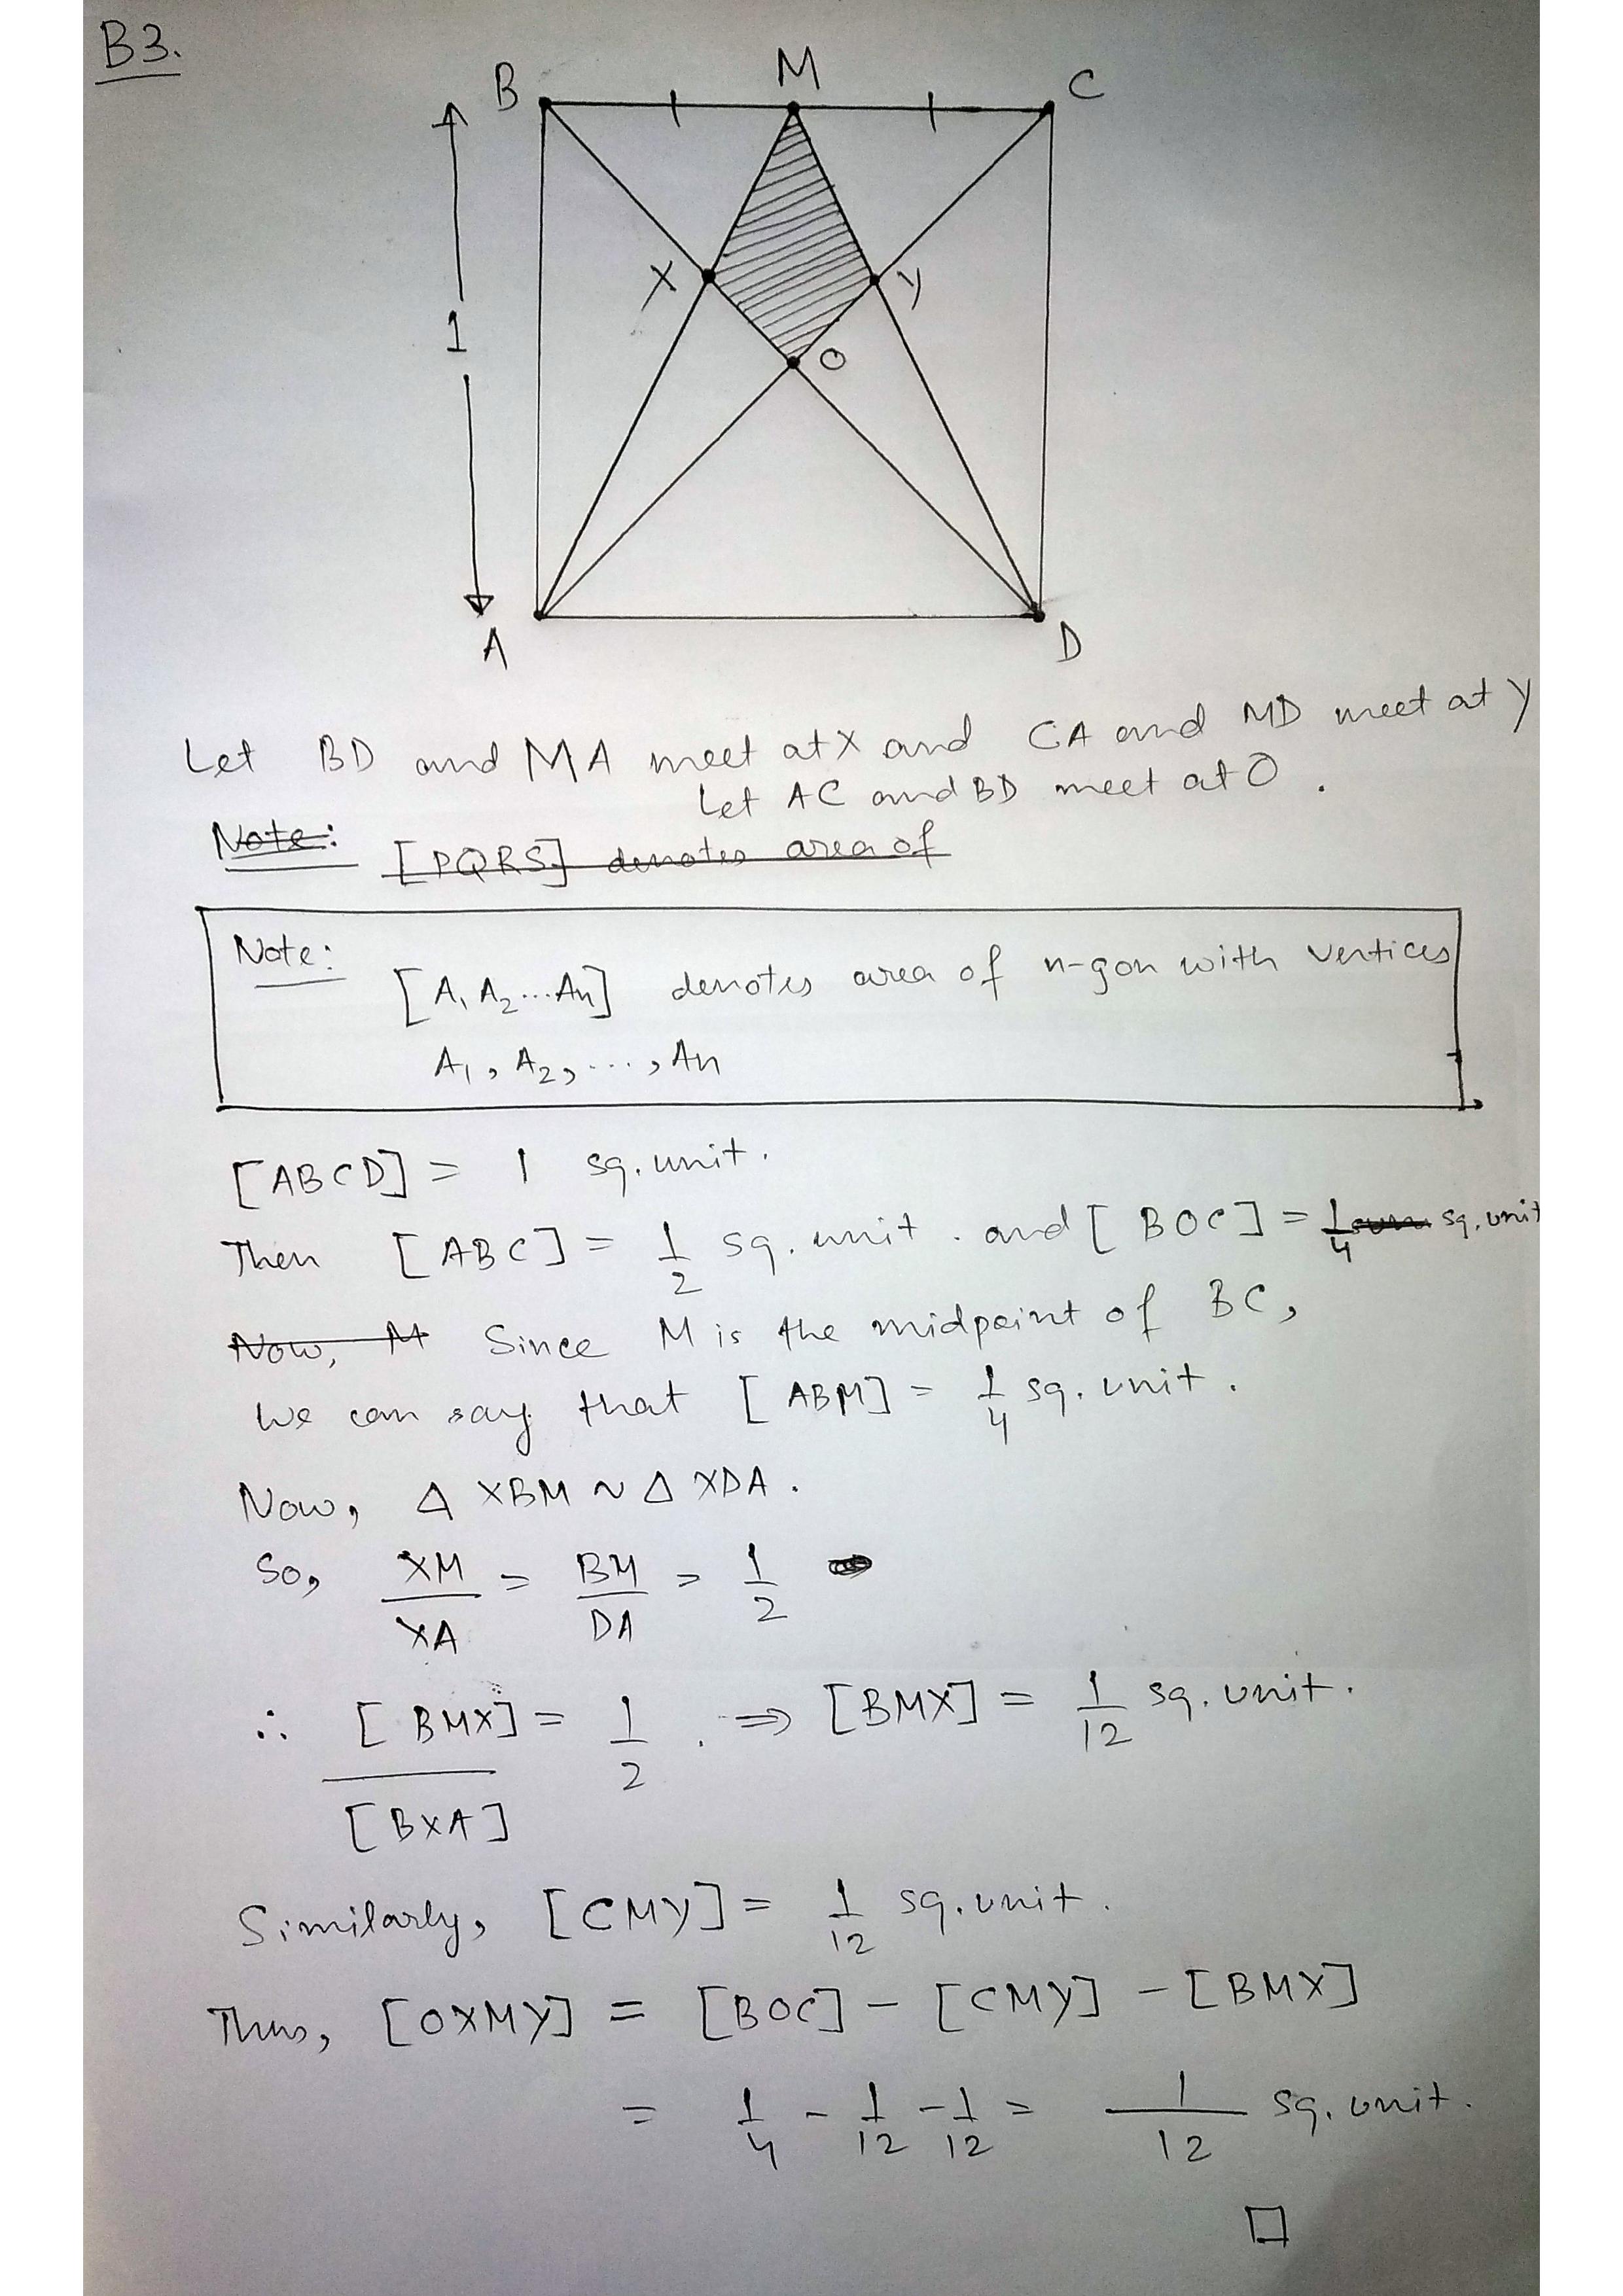 B3.
B M C
1
X Y
O
A D
Let BD and MA meet at X and CA and MD meet at Y
Let AC and BD meet at O.
Note: [PQRS] denotes area of
Note: [A₁ A₂ ... An] denotes area of n-gon with vertices
A₁, A₂, ..., An
[ABCD] = 1 sq. unit.
Then [ABC] = 1/2 sq. unit. and [BOC] = 1/4 sq. unit
Now, M Since M is the midpoint of BC,
we can say that [ABM] = 1/4 sq. unit.
Now, Δ XBM ~ Δ XDA.
So, XM/XA = BM/DA = 1/2
∴ [BMX]/[BXA] = 1/2. ⇒ [BMX] = 1/12 sq. unit.
Similarly, [CMY] = 1/12 sq. unit.
Thus, [OXMY] = [BOC] - [CMY] - [BMX]
= 1/4 - 1/12 - 1/12 = 1/12 sq. unit.
□